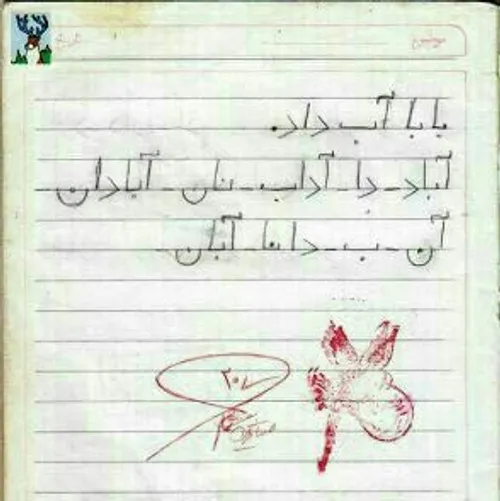 بابا آب داد.
آباد - دا - آداب - نان - آبادان
آن - ب - دانا - آبان -
۲۰